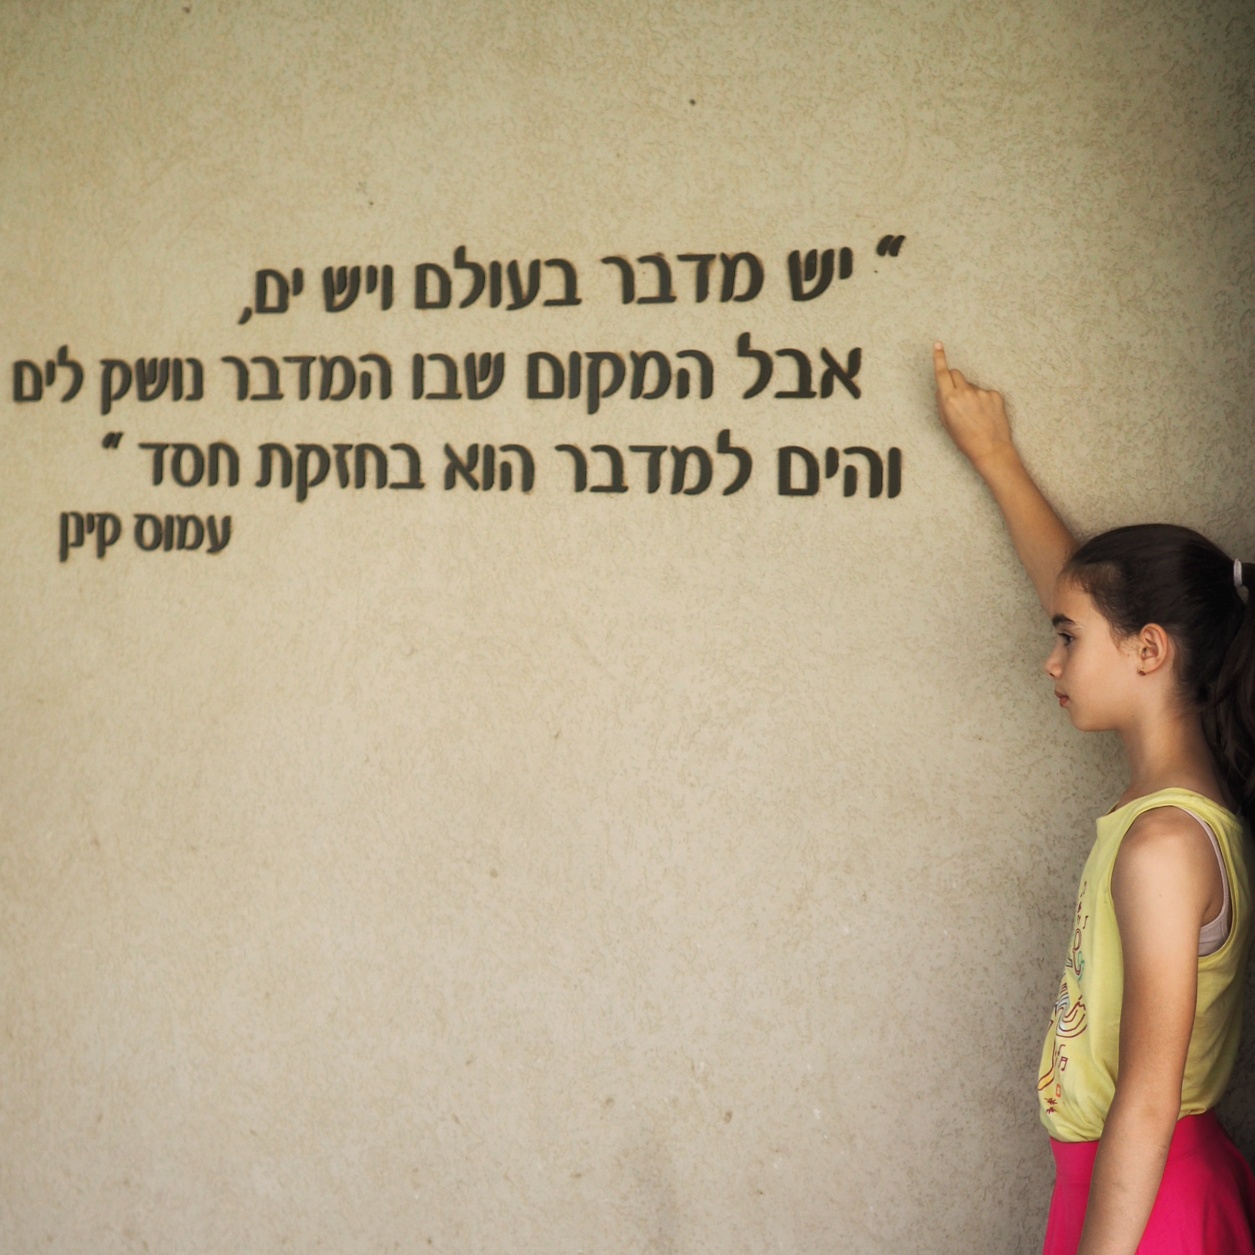 “ יש מדבר בעולם ויש ים,
אבל המקום שבו המדבר נושק לים
והים למדבר הוא בחזקת חסד “
עמוס קינן